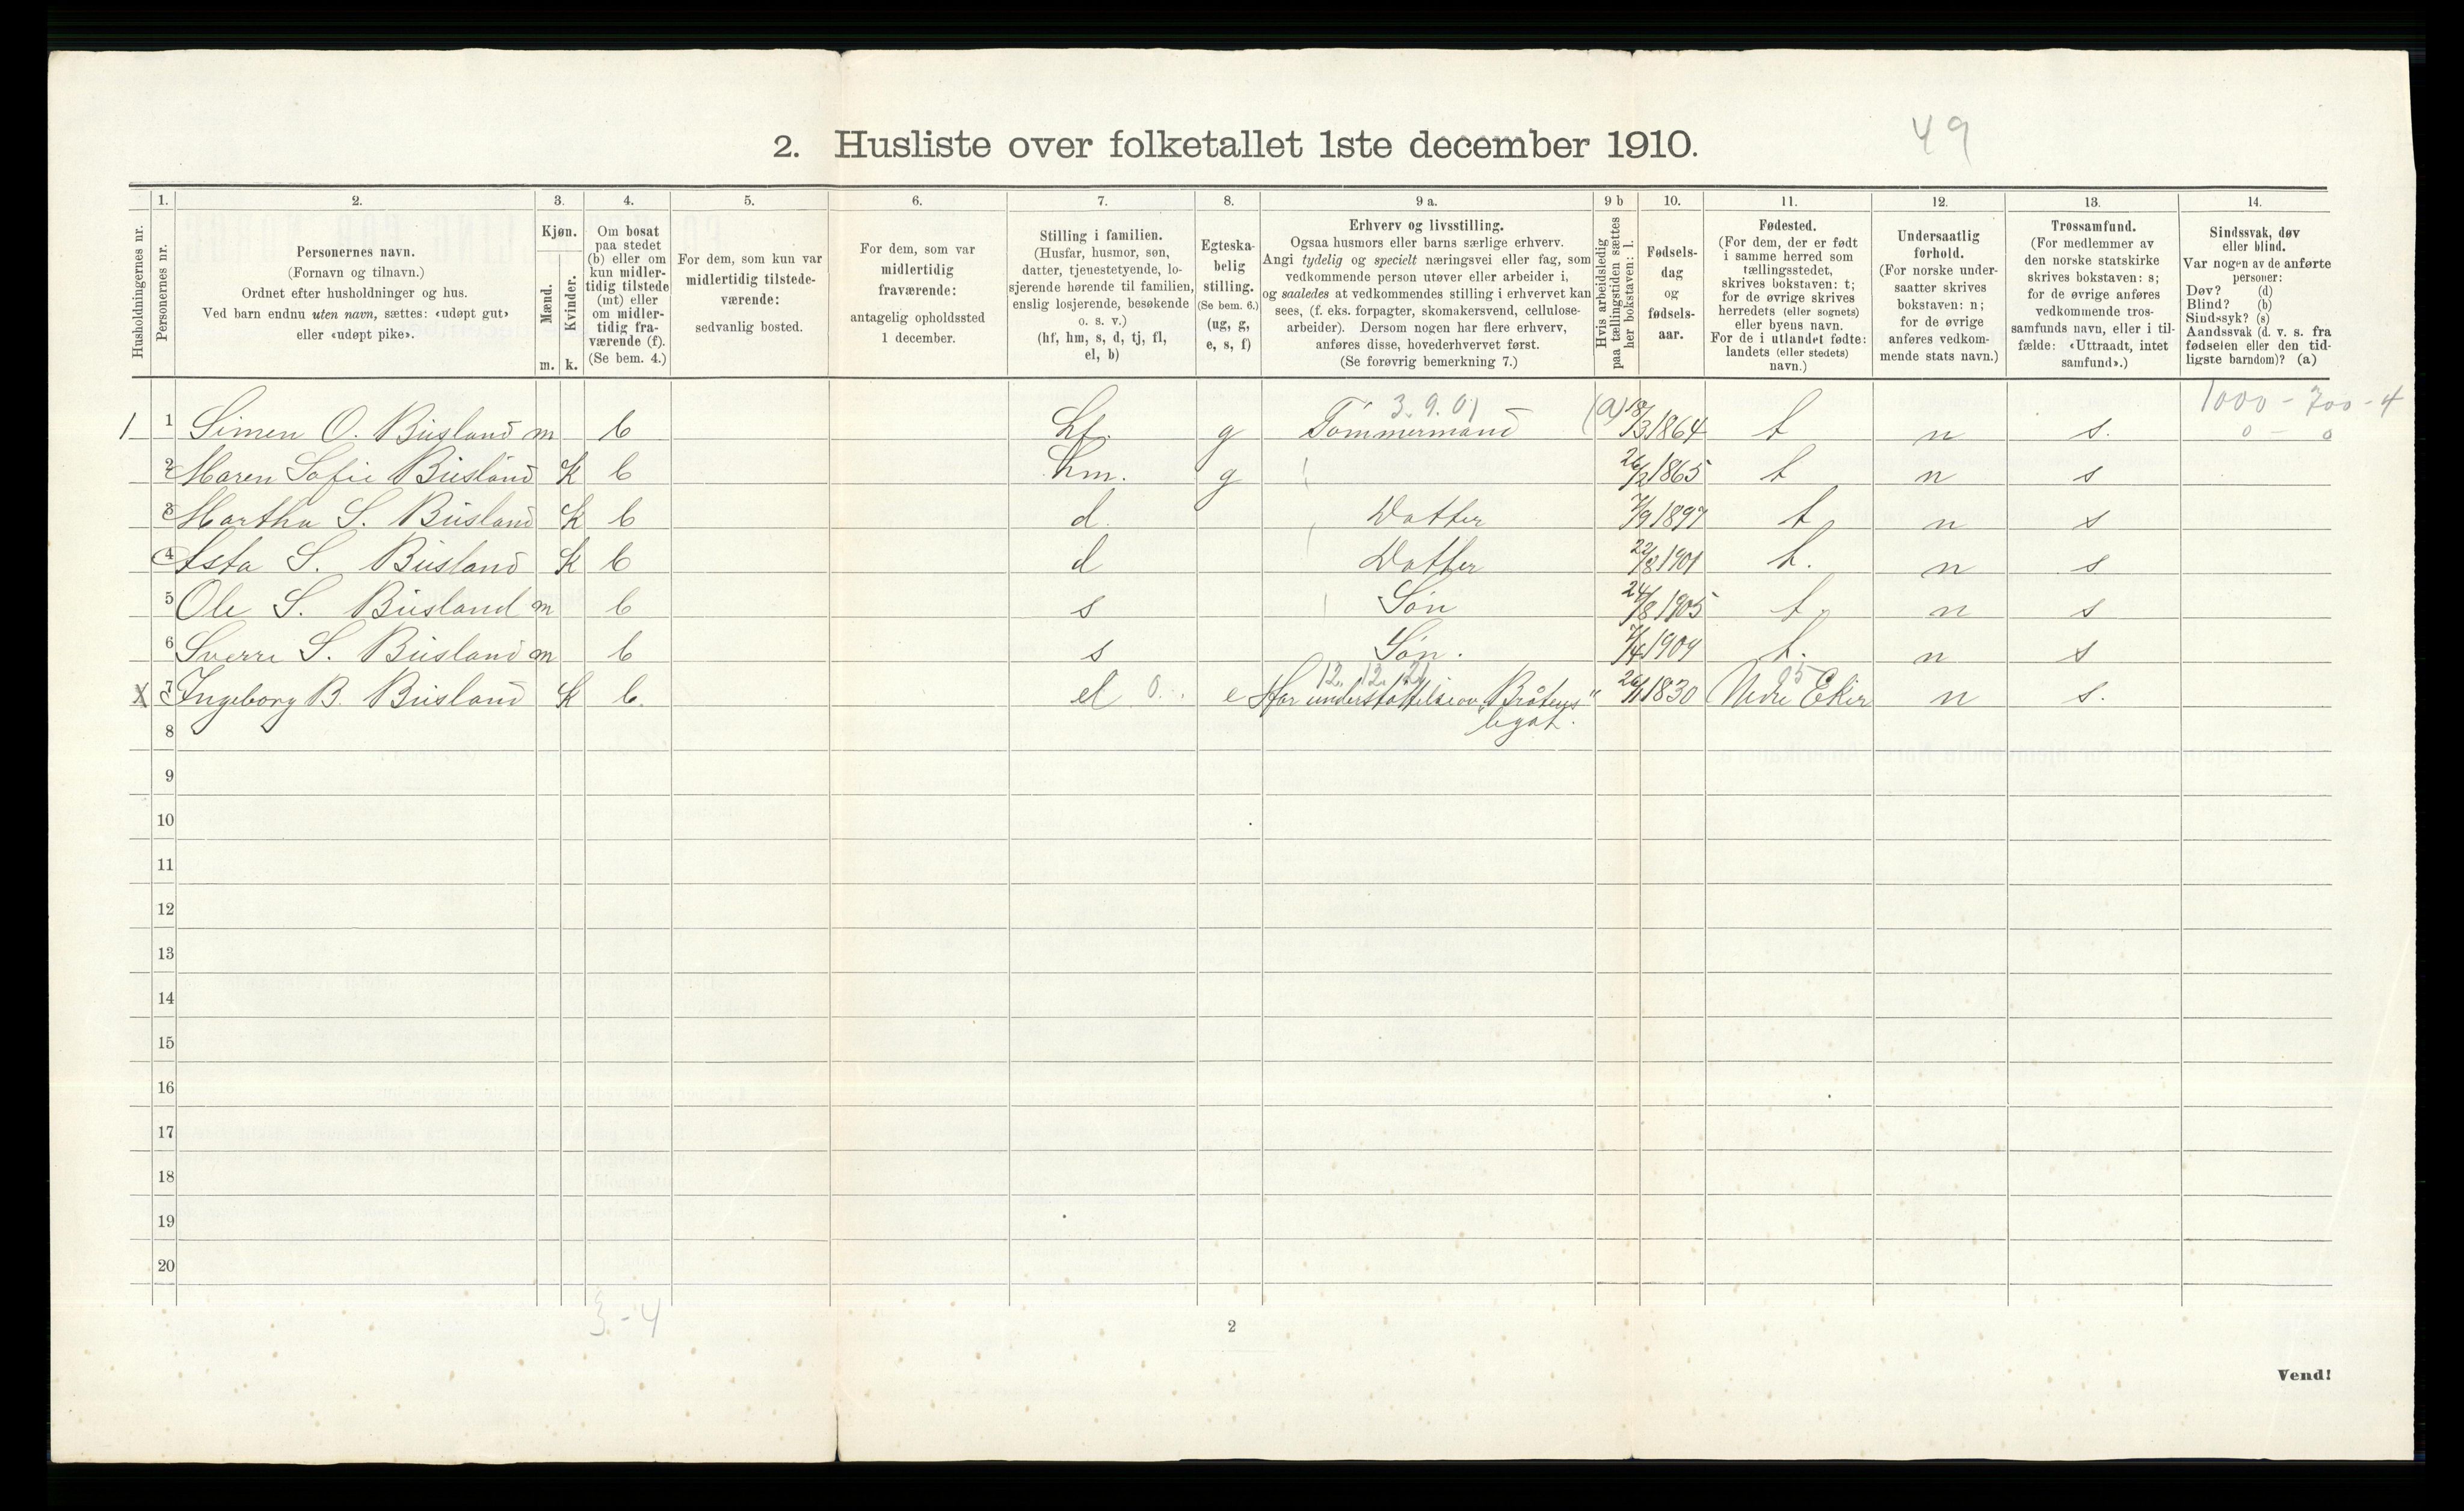 2. Husliste over folketallet 1ste december 1910.
49
Husholdningernes nr.
1.
Personernes nr.
2.
Personernes navn.
(Fornavn og tilnavn.)
Ordnet efter husholdninger og hus.
Ved barn endnu uten navn, sættes: «udøpt gut»
eller «udøpt pike».
3.
Kjøn.
Mænd.
Kvinder.
m. k.
4.
Om bosat
paa stedet
(b) eller om
kun midler-
tidig tilstede
(mt) eller
om midler-
tidig fra-
værende (f).
(Se bem. 4.)
5.
For dem, som kun var
midlertidig tilstede-
værende:
sedvanlig bosted.
6.
For dem, som var
midlertidig
fraværende:
antagelig opholdssted
1 december.
7.
Stilling i familien.
(Husfar, husmor, søn,
datter, tjenestetyende, lo-
sjerende hørende til familien,
enslig losjerende, besøkende
o. s. v.)
(hf, hm, s, d, tj, fl,
el, b)
8.
Egteska-
belig
stilling.
(Se bem. 6.)
(ug, g,
e, s, f)
9 a.
Erhverv og livsstilling.
Ogsaa husmors eller barns særlige erhverv.
Angi tydelig og specielt næringsvei eller fag, som
vedkommende person utøver eller arbeider i,
og saaledes at vedkommendes stilling i erhvervet kan
sees, (f. eks. forpagter, skomakersvend, cellulose-
arbeider). Dersom nogen har flere erhverv,
anføres disse, hovederhvervet først.
(Se forøvrig bemerkning 7.)
9 b
Hvis arbeidsledig
paa tællingstiden sættes
her bokstaven: l.
10.
Fødsels-
dag
og
fødsels-
aar.
11.
Fødested.
(For dem, der er født
i samme herred som
tællingsstedet,
skrives bokstaven: t;
for de øvrige skrives
herredets (eller sognets)
eller byens navn.
For de i utlandet fødte:
landets (eller stedets)
navn.)
12.
Undersaatlig
forhold.
(For norske under-
saatter skrives
bokstaven: n;
for de øvrige
anføres vedkom-
mende stats navn.)
13.
Trossamfund.
(For medlemmer av
den norske statskirke
skrives bokstaven: s;
for de øvrige anføres
vedkommende tros-
samfunds navn, eller i til-
fælde: «Uttraadt, intet
samfund».)
14.
Sindssvak, døv
eller blind.
Var nogen av de anførte
personer:
Døv? (d)
Blind? (b)
Sindssyk? (s)
Aandssvak (d. v. s. fra
fødselen eller den tid-
ligste barndom)? (a)
3.9.01 (a) 1000 - 700 - 4
1 1 Simen O. Büsland m b hf. g Tømmermand 18/3 1864 t n s. 0 - 0
2 Maren Sofie Büsland k b hm. g 26/2 1865 t n s
3 Martha S. Büsland k b d. Datter 7/9 1897 t n s
4 Asta S. Büsland k b d Datter 22/8 1901 t. n s
5 Ole S. Büsland m b s Søn 24/8 1905 t n s
6 Sverre S. Büsland m b s Søn. 7/4 1909 t. n s
12. 12. 21 05
X 7 Ingeborg B. Büsland k b. el 0 e Har understøttelse av "Bråtens" 26/1 1830 Nedre Eker n s.
8 legat.
9
10
11
12
13
14
15
16
17
18
19
20
3.-4
2
Vend!